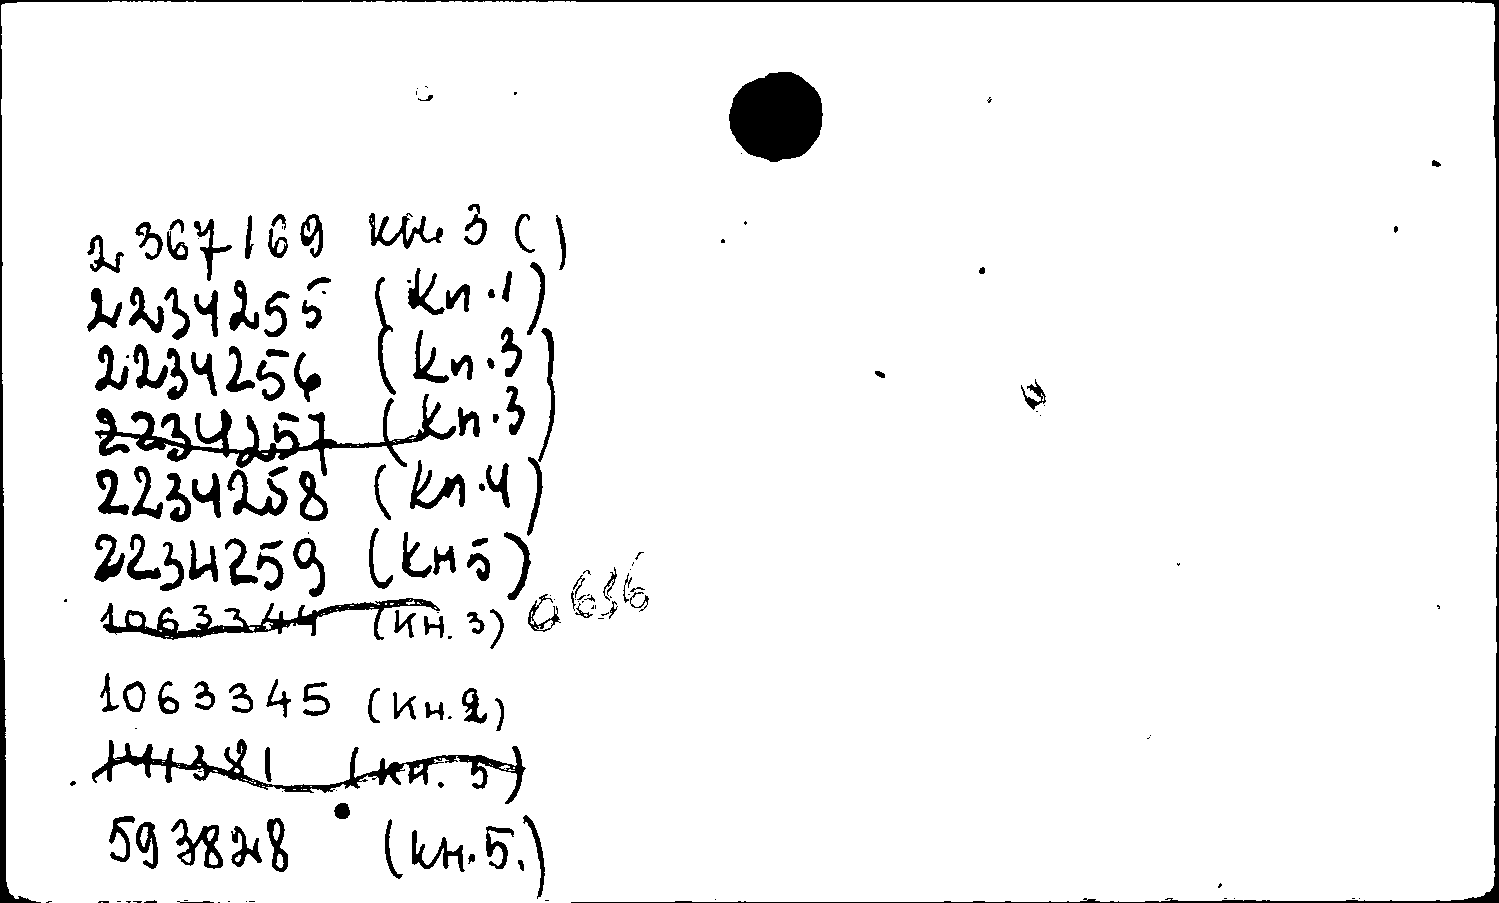 2367169 кн. 3 ( )
2234255 (кн. 1)
2234256 (кн. 3)
2234257 (кн. 3)
2234258 (кн. 4)
2234259 (кн 5)
1063344 (кн. 3) 0636
1063345 (кн. 2)
141381 (кн. 5)
593828 (кн. 5.)